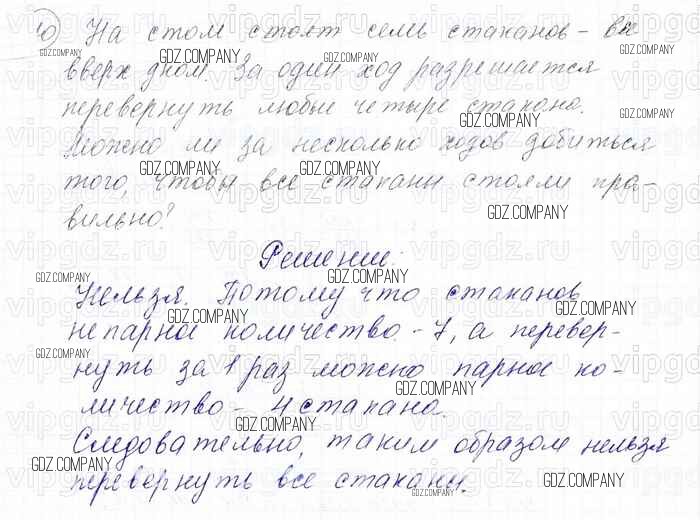 10) На столе стоят семь стаканов - все
вверх дном. За один ход разрешается
перевернуть любые четыре стакана.
Можно ли за несколько ходов добиться
того, чтобы все стаканы стояли пра-
вильно?
Решение:
Нельзя. Потому что стаканов
непарное количество - 7, а перевер-
нуть за 1 раз можно парное ко-
личество - 4 стакана.
Следовательно, таким образом нельзя
перевернуть все стаканы.
GDZ.COMPANY
vipgdz.ru